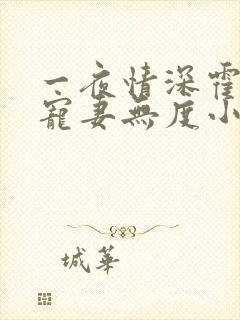 一夜情深霍
寵妻無度小
城華